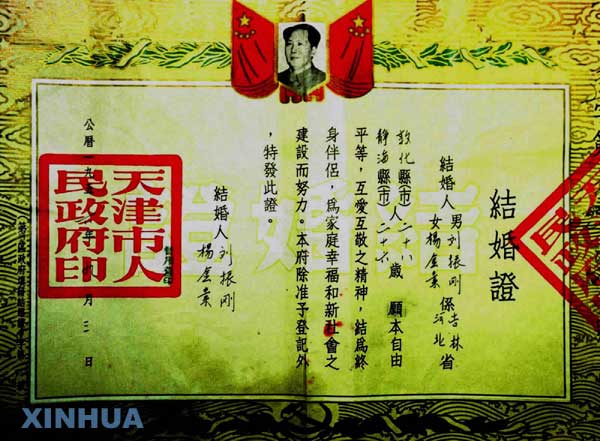 結婚證
結婚人 男刘振剛 係吉林省
女楊金 河北
敦化縣(市)人二十八歲 願本自由
静海縣(市) 二十六
平等，互愛互敬之精神，結爲終
身伴侶，爲家庭幸福和新社會之
建設而努力。本府除准予登記外
，特發此證。
結婚人 刘振剛
楊金
天津市人
民政府印
公曆一九五 年 月三日
XINHUA